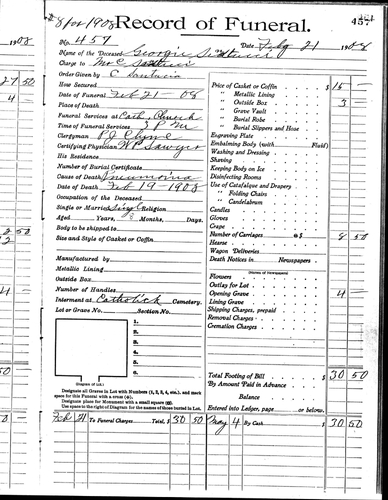 Record of Funeral.
457
No. 457
Date Feb 21 1908
Name of the Deceased Georgie
Charge to Mr C
Order Given by C
How Secured
Date of Funeral Feb 21 - 08
Place of Death
Funeral Services at Cath. Church
Time of Funeral Services 2 P M
Clergyman P J Clyne
Certifying Physician W P Sawyer
His Residence
Number of Burial Certificate
Cause of Death Pneumonia
Date of Death Feb 19 - 1908
Occupation of the Deceased
Single or Married Single Religion
Aged Years, 3 Months, Days.
Body to be shipped to
Size and Style of Casket or Coffin
Manufactured by
Metallic Lining
Outside Box
Number of Handles
Interment at Catholick Cemetery.
Lot or Grave No. Section No.
1.
2.
3.
4.
5.
6.
(Diagram of Lot.)
Designate all Graves in Lot with Numbers (1, 2, 3, 4, etc.), and mark
space for this Funeral with a cross (x).
Designate place for Monument with a small square
Use to space to the right of Diagram for the names of those buried in Lot.
Feb 21 To Funeral Charges Total, $ 30 50
Price of Casket or Coffin $ 15
" Metallic Lining
" Outside Box 3
" Grave Vault
" Burial Robe
" Burial Slippers and Hose
Engraving Plate
Embalming Body (with Fluid)
Washing and Dressing
Shaving
Keeping Body on Ice
Disinfecting Rooms
Use of Catafalque and Drapery
" Folding Chairs
" Candelabrum
Candles
Gloves
Crape
Number of Carriages @ $ 8 50
Hearse
Wagon Deliveries
Death Notices in Newspapers
(Names of Newspapers)
Flowers
Outlay for Lot
Opening Grave 4
Lining Grave
Shipping Charges, prepaid
Removal Charges
Cremation Charges
Total Footing of Bill $ 30 50
By Amount Paid in Advance
Balance
Entered into Ledger, page or below.
May 4 By Cash $ 30 50